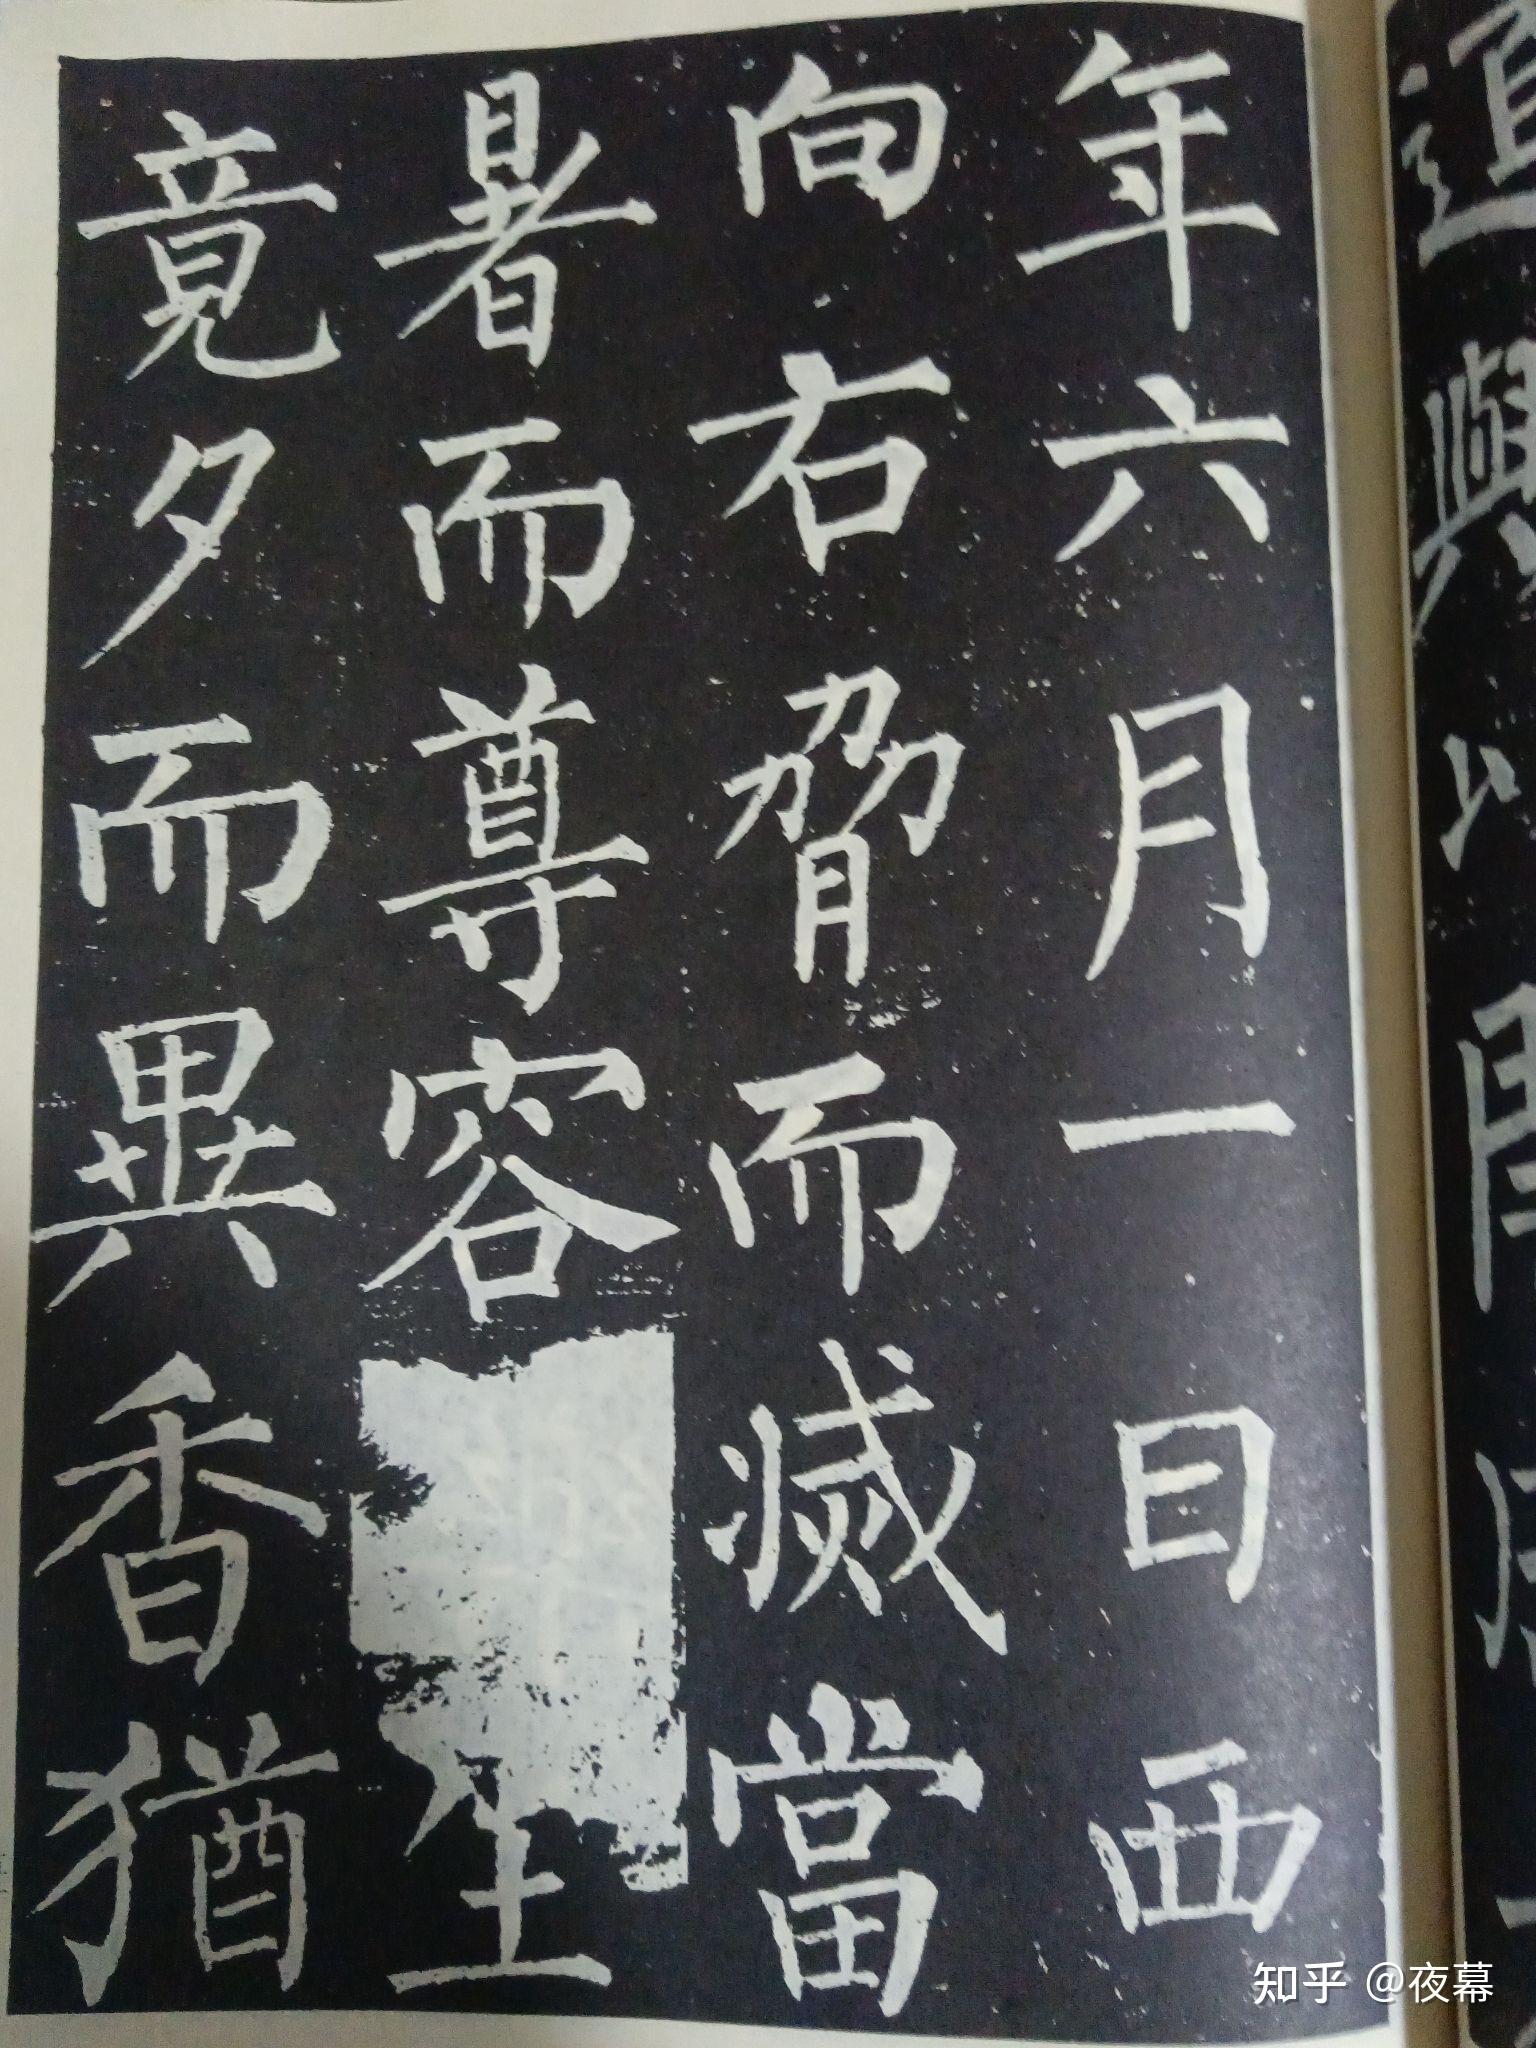 年六月一日西
向右脅而滅當
暑而尊容生
竟夕而異香猶
知乎 @夜幕